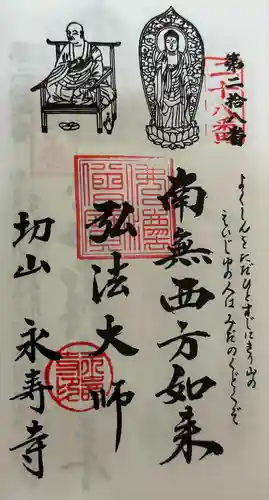 第二拾八番
よくしんを たゞひとすじに きり山の
えいじゆの人は みだのくどくぞ
南無西方如来
弘法大師
切山 永寿寺